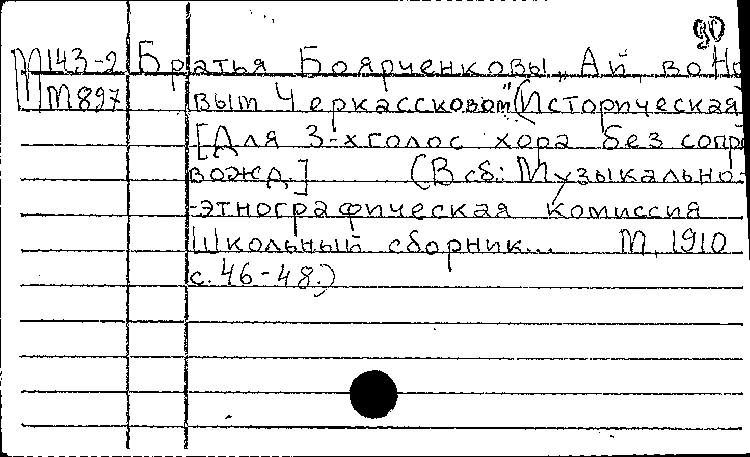 90
М143-2 Братья Боярченковы „Ай, во Но
М897 вым Черкассковом" (Историческая)
[Для 3-х голос хора без сопро
вожд.] (В сб: Музыкально-
-этнографическая комиссия
Школьный сборник... М, 1910
с. 46-48.)